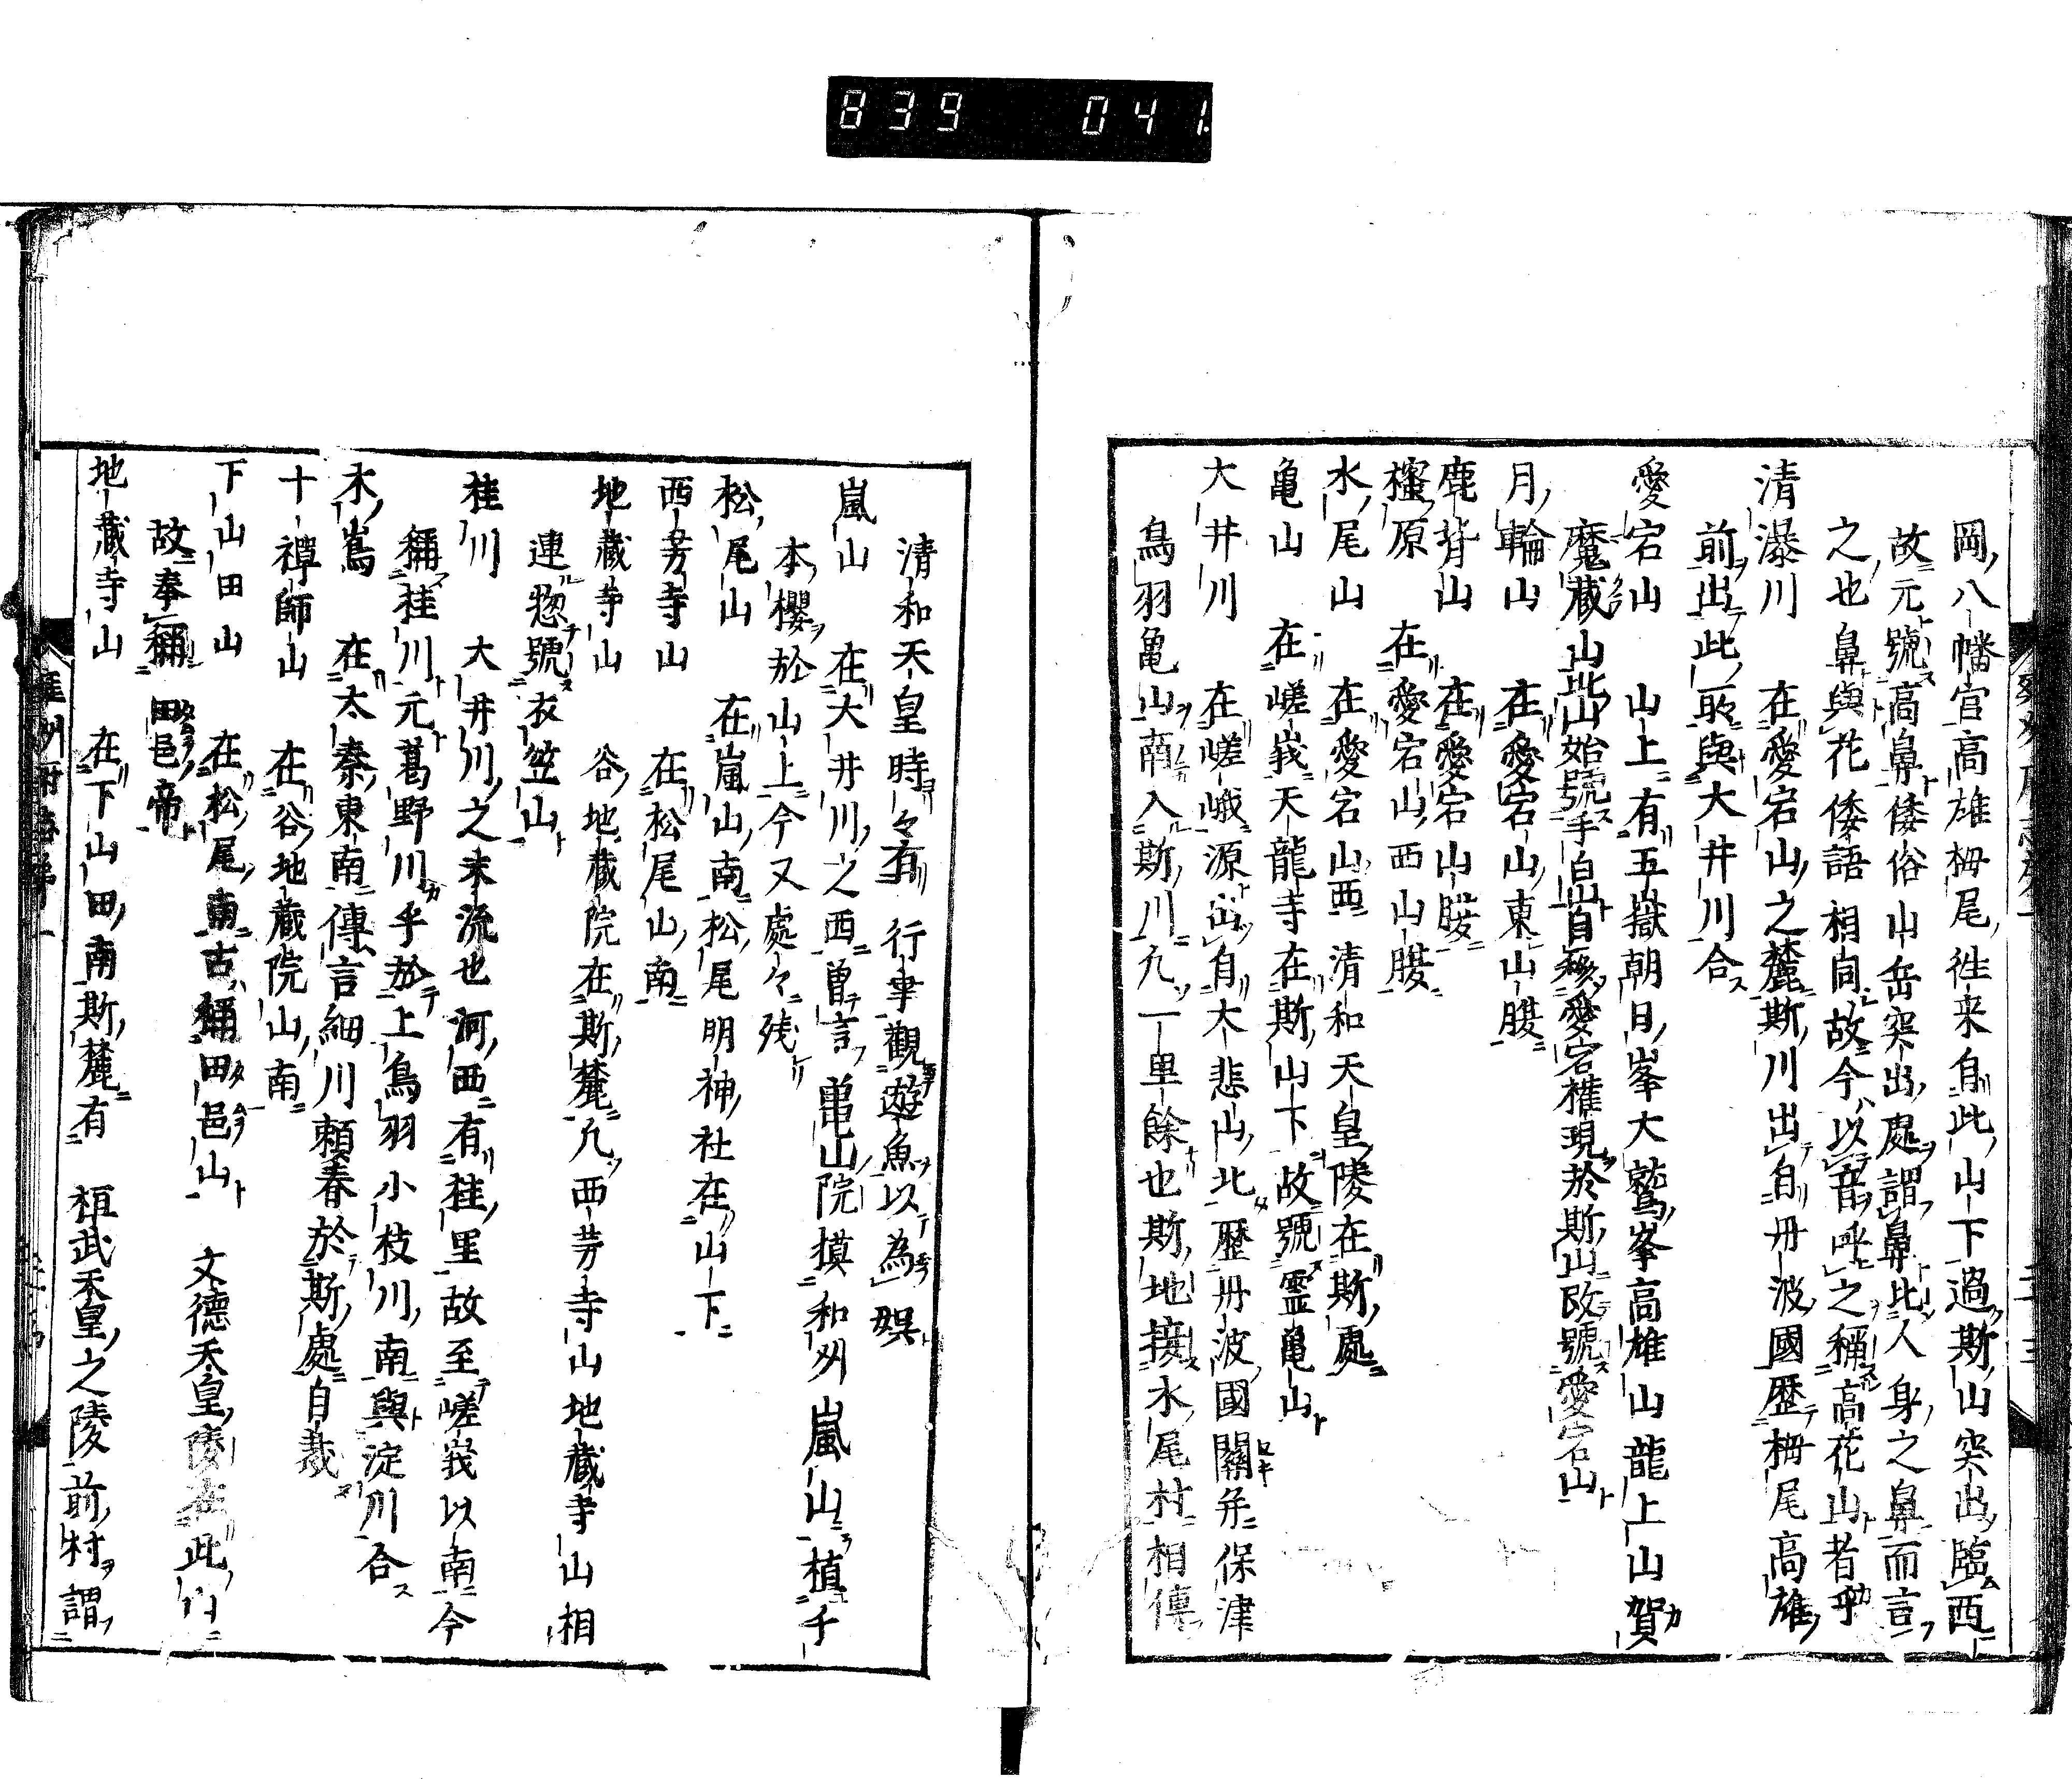 839 041.
岡八幡宮高雄栂尾徃来自此山下過斯山突出臨西
故元號高鼻倭俗山岳突出處謂鼻比人身之鼻而言
之也鼻與花倭語相同故今以音呼之稱高花山者乎
清瀑川 在愛宕山之麓斯川出自丹波國歷栂尾高雄
前出此取與大井川合
愛宕山 山上有五嶽朝日峯大鷲峯高雄山龍上山賀
魔蔵山此山始號手白山自移愛宕權現於斯山改號愛宕山
月輪山 在愛宕山東山腰
鹿背山 在愛宕山腰
樒原 在愛宕山西山腰
水尾山 在愛宕山西 清和天皇陵在斯處
亀山 在嵯峩天龍寺在斯山下故號霊亀山
大井川 在嵯峨源出自大悲山北歷丹波國關并保津
鳥羽亀山南入斯川凡一里餘也斯地接水尾村相傳
清和天皇時々有 行幸觀遊魚以為娯
嵐山 在大井川之西曽言亀山院摸和州嵐山植千
本櫻於山上今又處々残
松尾山 在嵐山南松尾明神社在山下
西芳寺山 在松尾山南
地蔵寺山 谷地蔵院在斯麓凡西芳寺山地蔵寺山相
連惣號衣笠山
桂川 大井川之末流也河西有桂里故至嵯峩以南今
稱桂川元葛野川乎於上鳥羽小枝川南與淀川合
木嶌 在太秦東南傳言細川頼春於斯處自裁
十禅師山 在谷地蔵院山南
下山田山 在松尾南古稱田邑山 文德天皇陵在此山
故奉稱 田邑帝
地蔵寺山 在下山田南斯麓有 桓武天皇之陵前村謂